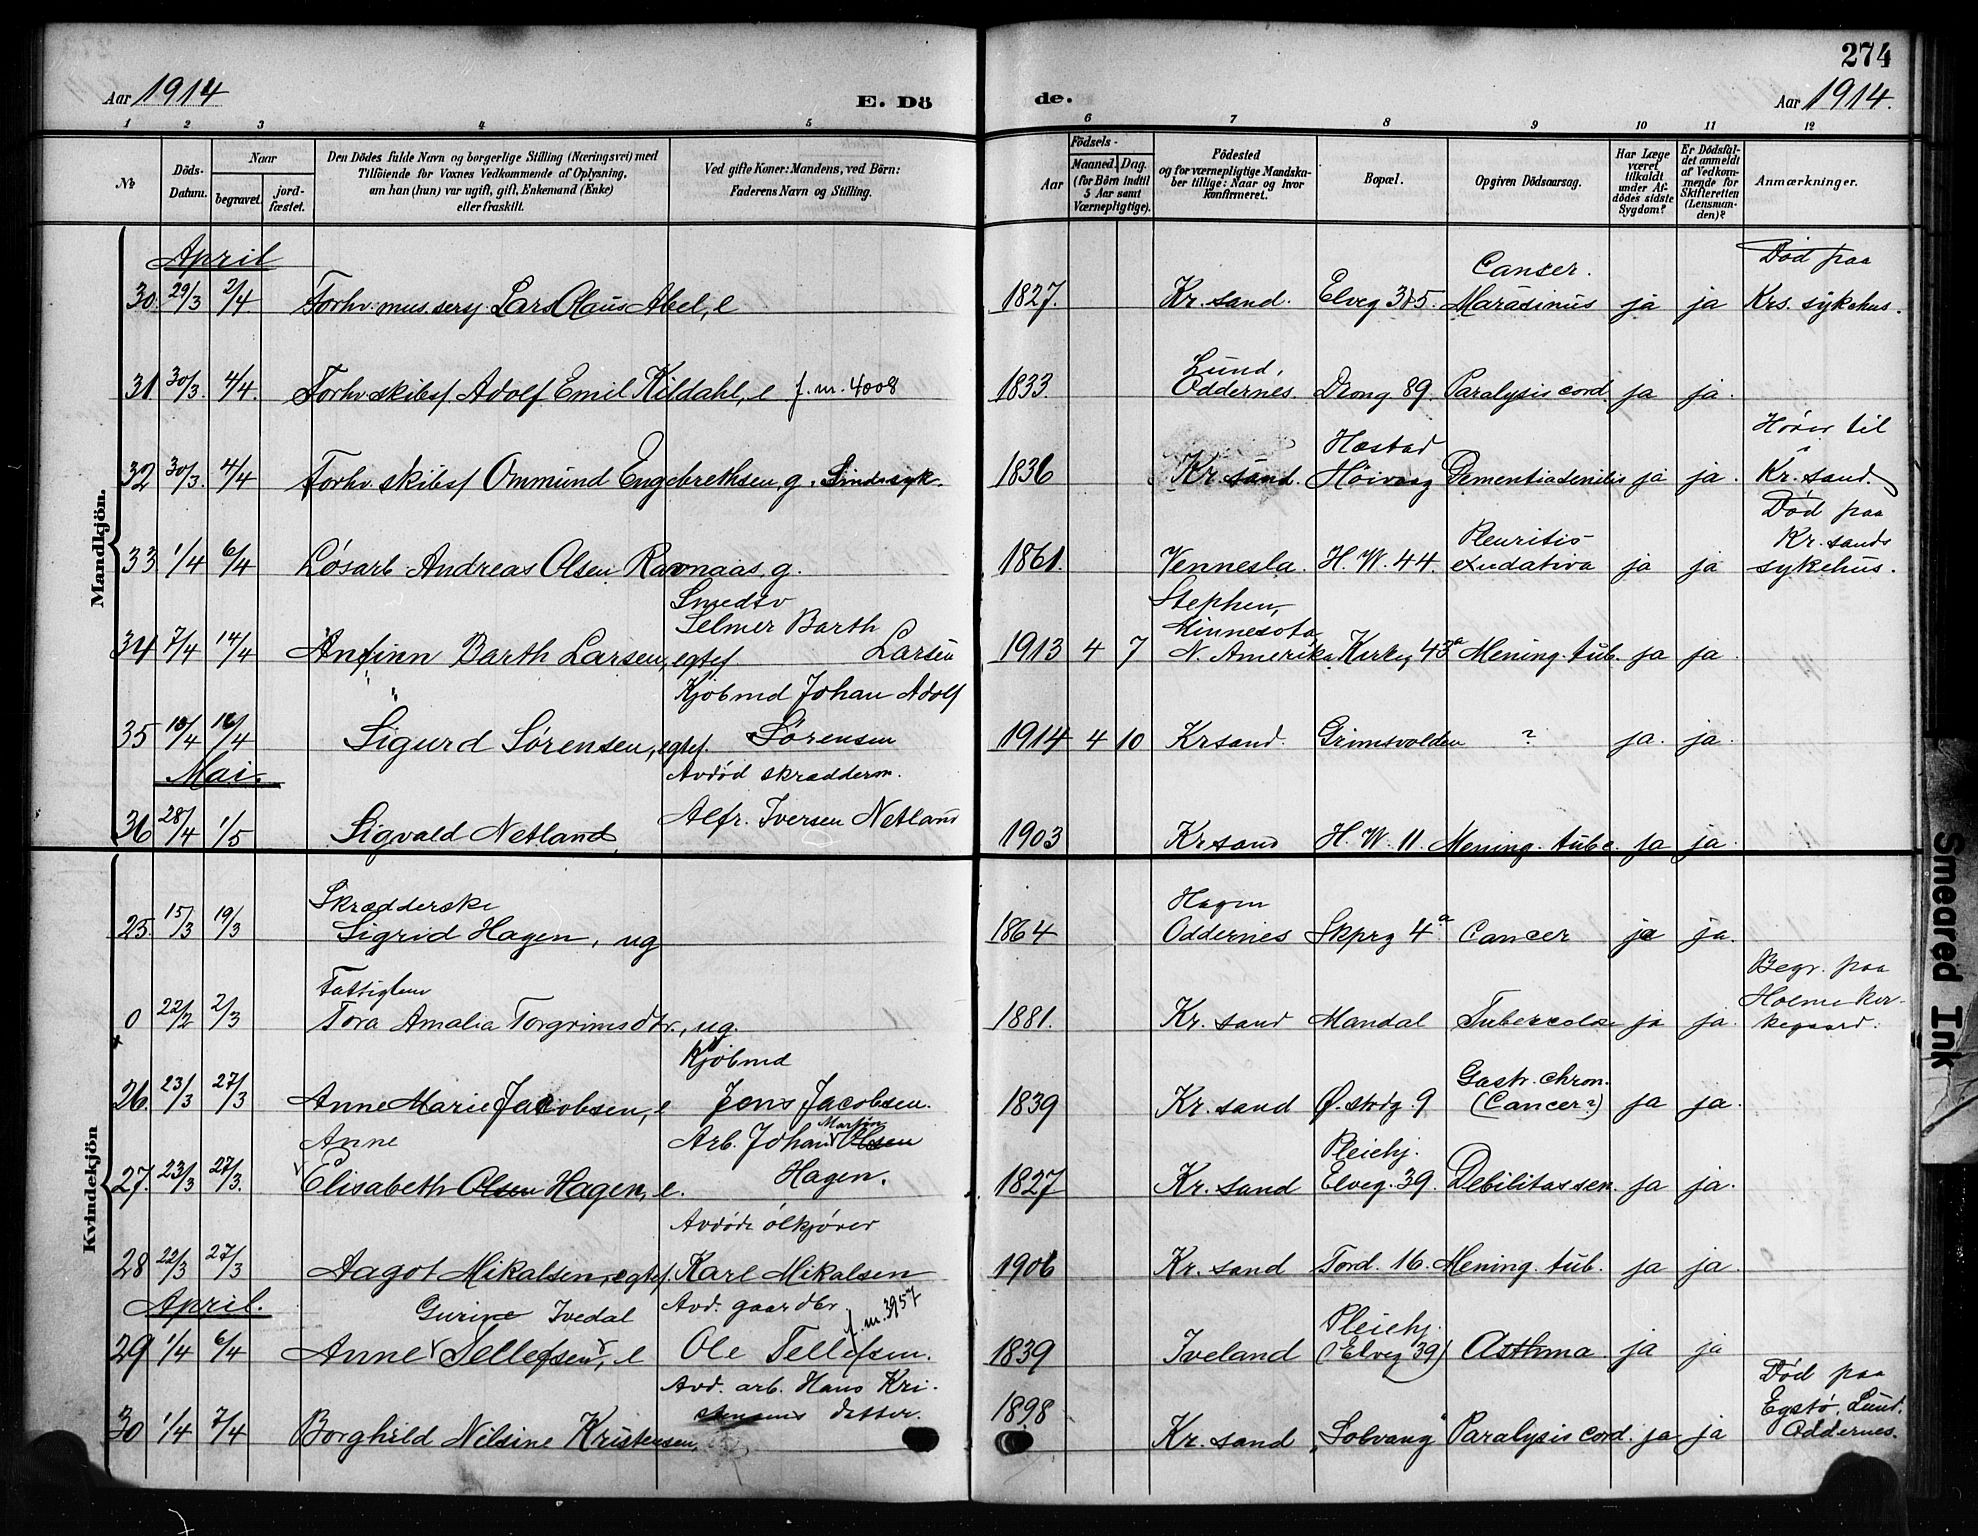 274
Aar 1914
E. Dö
de.
Aar 1914.
1 2 3 4 5 6 7 8 9 10 11 12
№
Döds-Datum.
Naar
begravet.
jord-fæstet.
Den Dödes fulde Navn og borgerlige Stilling (Næringsvei) med
Tilföiende for Voxnes Vedkommende af Oplysning,
om han (hun) var ugift, gift, Enkemand (Enke)
eller fraskilt.
Ved gifte Koner: Mandens, ved Börn:
Faderens Navn og Stilling.
Födsels-
Aar
Maaned. Dag.
(for Börn indtil
5 Aar samt
Værnepligtige).
Födested
og for værnepligtige Mandska-
ber tillige: Naar og hvor
konfirmeret.
Bopæl.
Opgiven Dödsaarsag.
Har Læge
været
tilkaldt
under Af-
dödes sidste
Sygdom?
Er Dödsfal-
det anmeldt
af Vedkom-
mende for
Skifteretten
(Lensman-
den)?
Anmærkninger.
Mandkjön.
April
Canser. Död paa
30. 29/3 2/4. Forhv. mus. serg. Lars Olaus Abel, e 1827. Kr. sand. Elveg 375. Marasimus ja ja Krs. sykehus.
Lund,
31 30/3. 4/4. Forhv. skibsf. Adolf Emil Kildahl, e f. m. 4008 1833. Oddernes. Drong 89. Paralysis cord. ja ja.
Hæstad Hører til
32 30/3. 4/4 Forhv. skibsf Ommund Engebrethsen, g. Sindssyk. 1836 Kr. sand. Höivaag Dementia senilis ja ja. Kr. sand.
Pleuritis Död paa
Kr. sands
33 1/4 6/4 Løsarb. Andreas Olsen Ravnaas, g. 1861. Vennesla. H. W. 44. exudativa ja ja sykehus.
Smedsv Stephen,
Selmer Barth Minnesota
34 7/4 14/4 Anfinn Barth Larsen, egtef Larsen 1913 4 7 N. Amerika Kirkeg 43a Mening. tub. ja ja.
Kjöbmd Johan Adolf
35 10/4 16/4 Sigurd Sørensen, egtef. Sørensen 1914 4 10 Kr sand. Grimsvolden ? ja. ja.
Mai. Avdød skrædderm.
36 28/4 1/5 Sigvald Netland, Alfr. Iversen Netland 1903 Kr sand H. W. 11. Mening. tubc. ja ja.
Kvindekjön
Skrædderske Hagen
25. 15/3 19/3 Sigrid Hagen, ug 1864 Oddernes Skprg 4a Cancer ja ja.
Fattiglem Begr. paa
Holme kir-
0 22/2 2/3 Tora Amalia Torgrimsdtr., ug. 1881. Kr. sand Mandal Tubercolose ja ja. kegaard.
Kjöbmd Gastr. chron.
26. 23/3 27/3 Anne Marie Jacobsen, e Jens Jacobsen. 1839 Kr. sand Ø. strdg. 9 (Cancer?) ja ja.
Anne Arb. Johan Martin Olsen Pleiehj.
27. 23/3 27/3. Elisabeth Olsen Hagen, e. Hagen. 1827 Kr. sand Elveg. 39. Debilitas sen. ja ja.
Avdøde ølkjører
28 22/3 27/3 Aagot Mikalsen, egtef. Karl Mikalsen 1906 Kr. sand Tord. 16. Mening. tub. ja ja.
April. Gurine Ivedal Avd. gaardbr f. m. 3957 Pleiehj.
29 1/4 6/4 Anne Tellefsen, e Ole Tellefsen. 1839 Iveland (Elveg 39) Asthma ja ja
Avd. arb. Hans Kri- Död paa
stensens datter. Egstø, Lund.
30 1/4 7/4 Borghild Nilsine Kristensen, 1898 Kr. sand "Solvang" Paralysis cord. ja ja Oddernes.
Smeared Ink